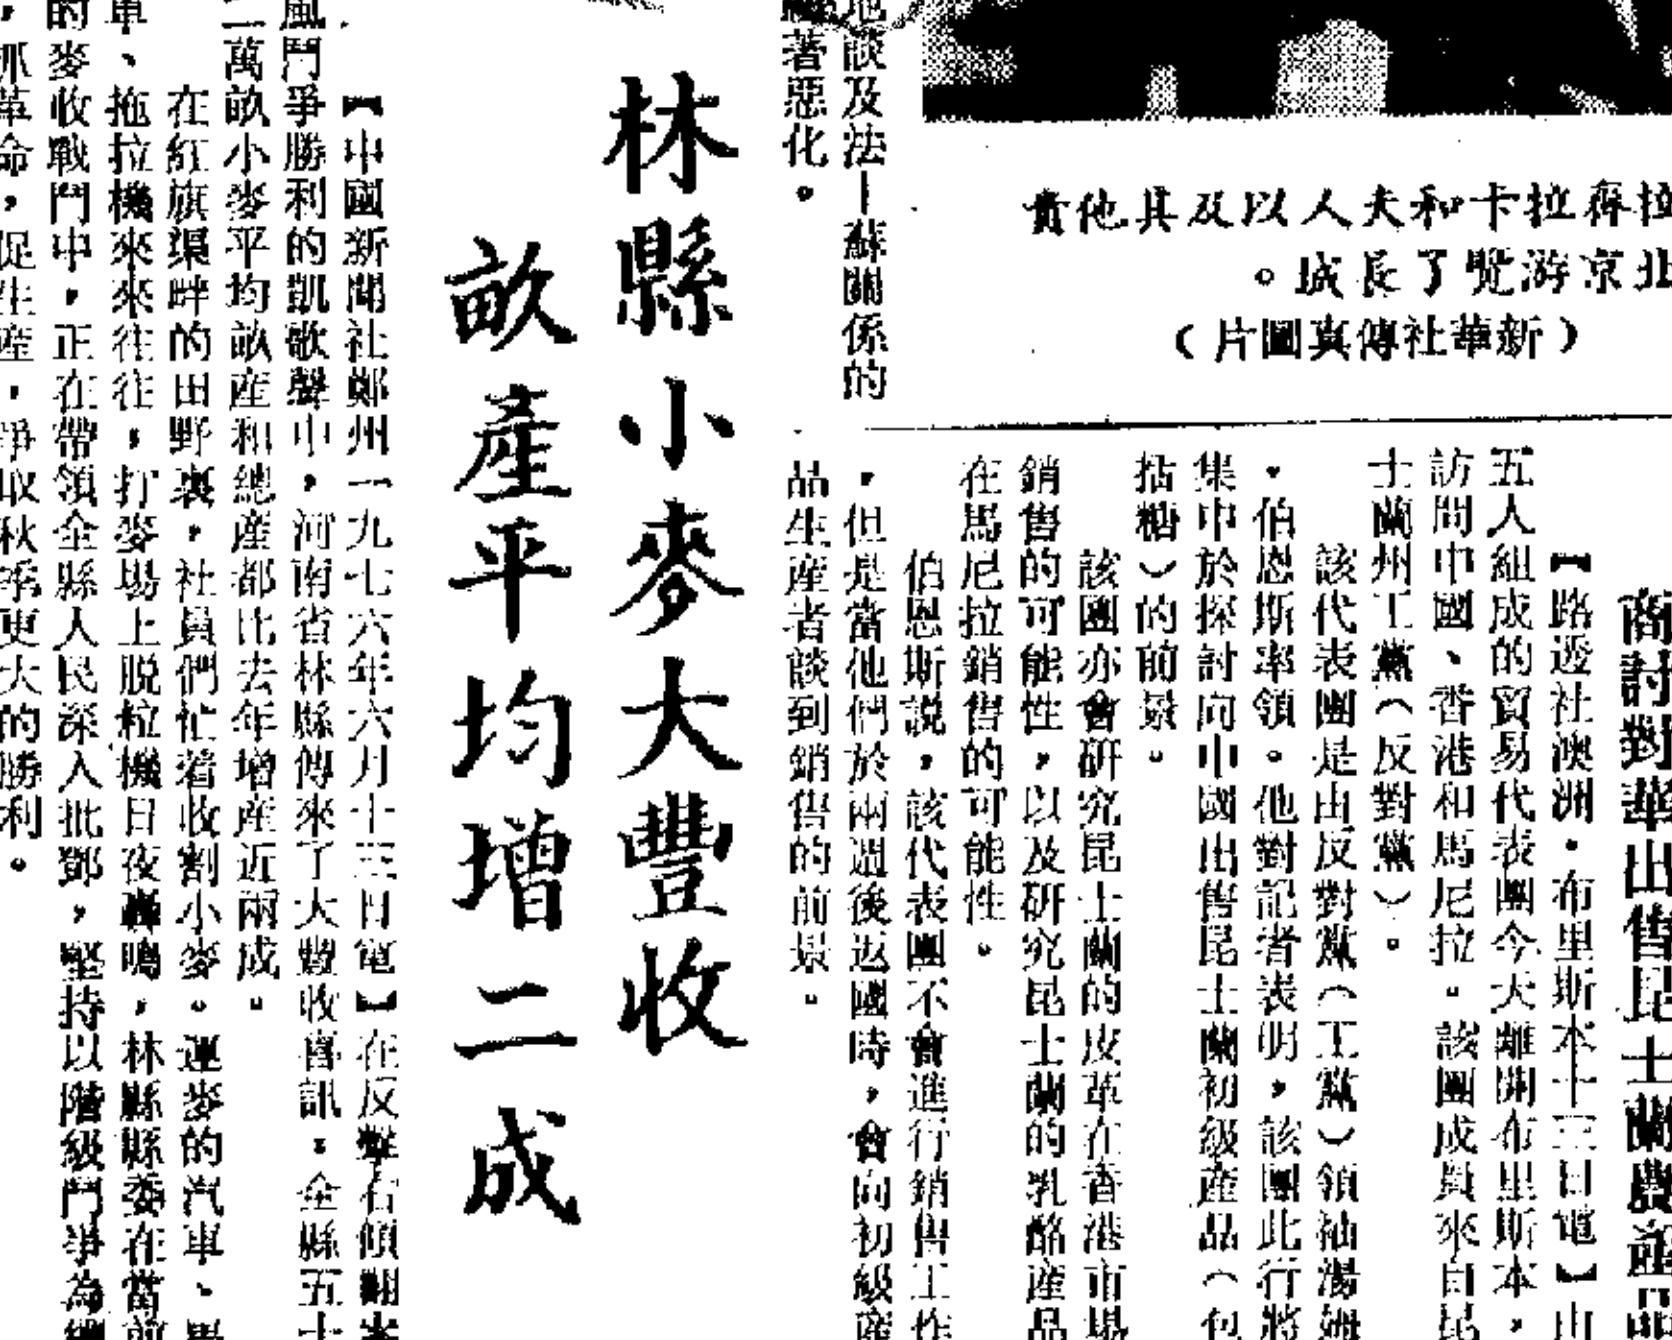 地談及法—蘇關係的
著惡化。
拉蒂拉卡和夫人以及其他貴
北京游覽了長城。
（新華社傳真圖片）
商討對華出售昆士蘭農產品
【路透社澳洲·布里斯本十三日電】由
五人組成的貿易代表團今天離開布里斯本，
訪問中國、香港和馬尼拉。該團成員來自昆
士蘭州工黨（反對黨）。
該代表團是由反對黨（工黨）領袖湯姆
·伯恩斯率領。他對記者表明，該團此行將
集中於探討向中國出售昆士蘭初級產品（包
括糖）的前景。
該團亦會研究昆士蘭的皮革在香港市場
銷售的可能性，以及研究昆士蘭的乳酪產品
在馬尼拉銷售的可能性。
伯恩斯說，該代表團不會進行銷售工作
，但是當他們於兩週後返國時，會向初級產
品生產者談到銷售的前景。
林縣小麥大豐收
畝產平均增二成
【中國新聞社鄭州一九七六年六月十三日電】在反擊右傾翻案
風鬥爭勝利的凱歌聲中，河南省林縣傳來了大豐收喜訊。全縣五十
二萬畝小麥平均畝產和總產都比去年增產近兩成。
在紅旗渠畔的田野裏，社員們忙着收割小麥。運麥的汽車、馬
車、拖拉機來來往往，打麥場上脫粒機日夜轟鳴，林縣縣委在當前
的麥收戰鬥中，正在帶領全縣人民深入批鄧，堅持以階級鬥爭為綱
，抓革命，促生產，爭取秋季更大的勝利。